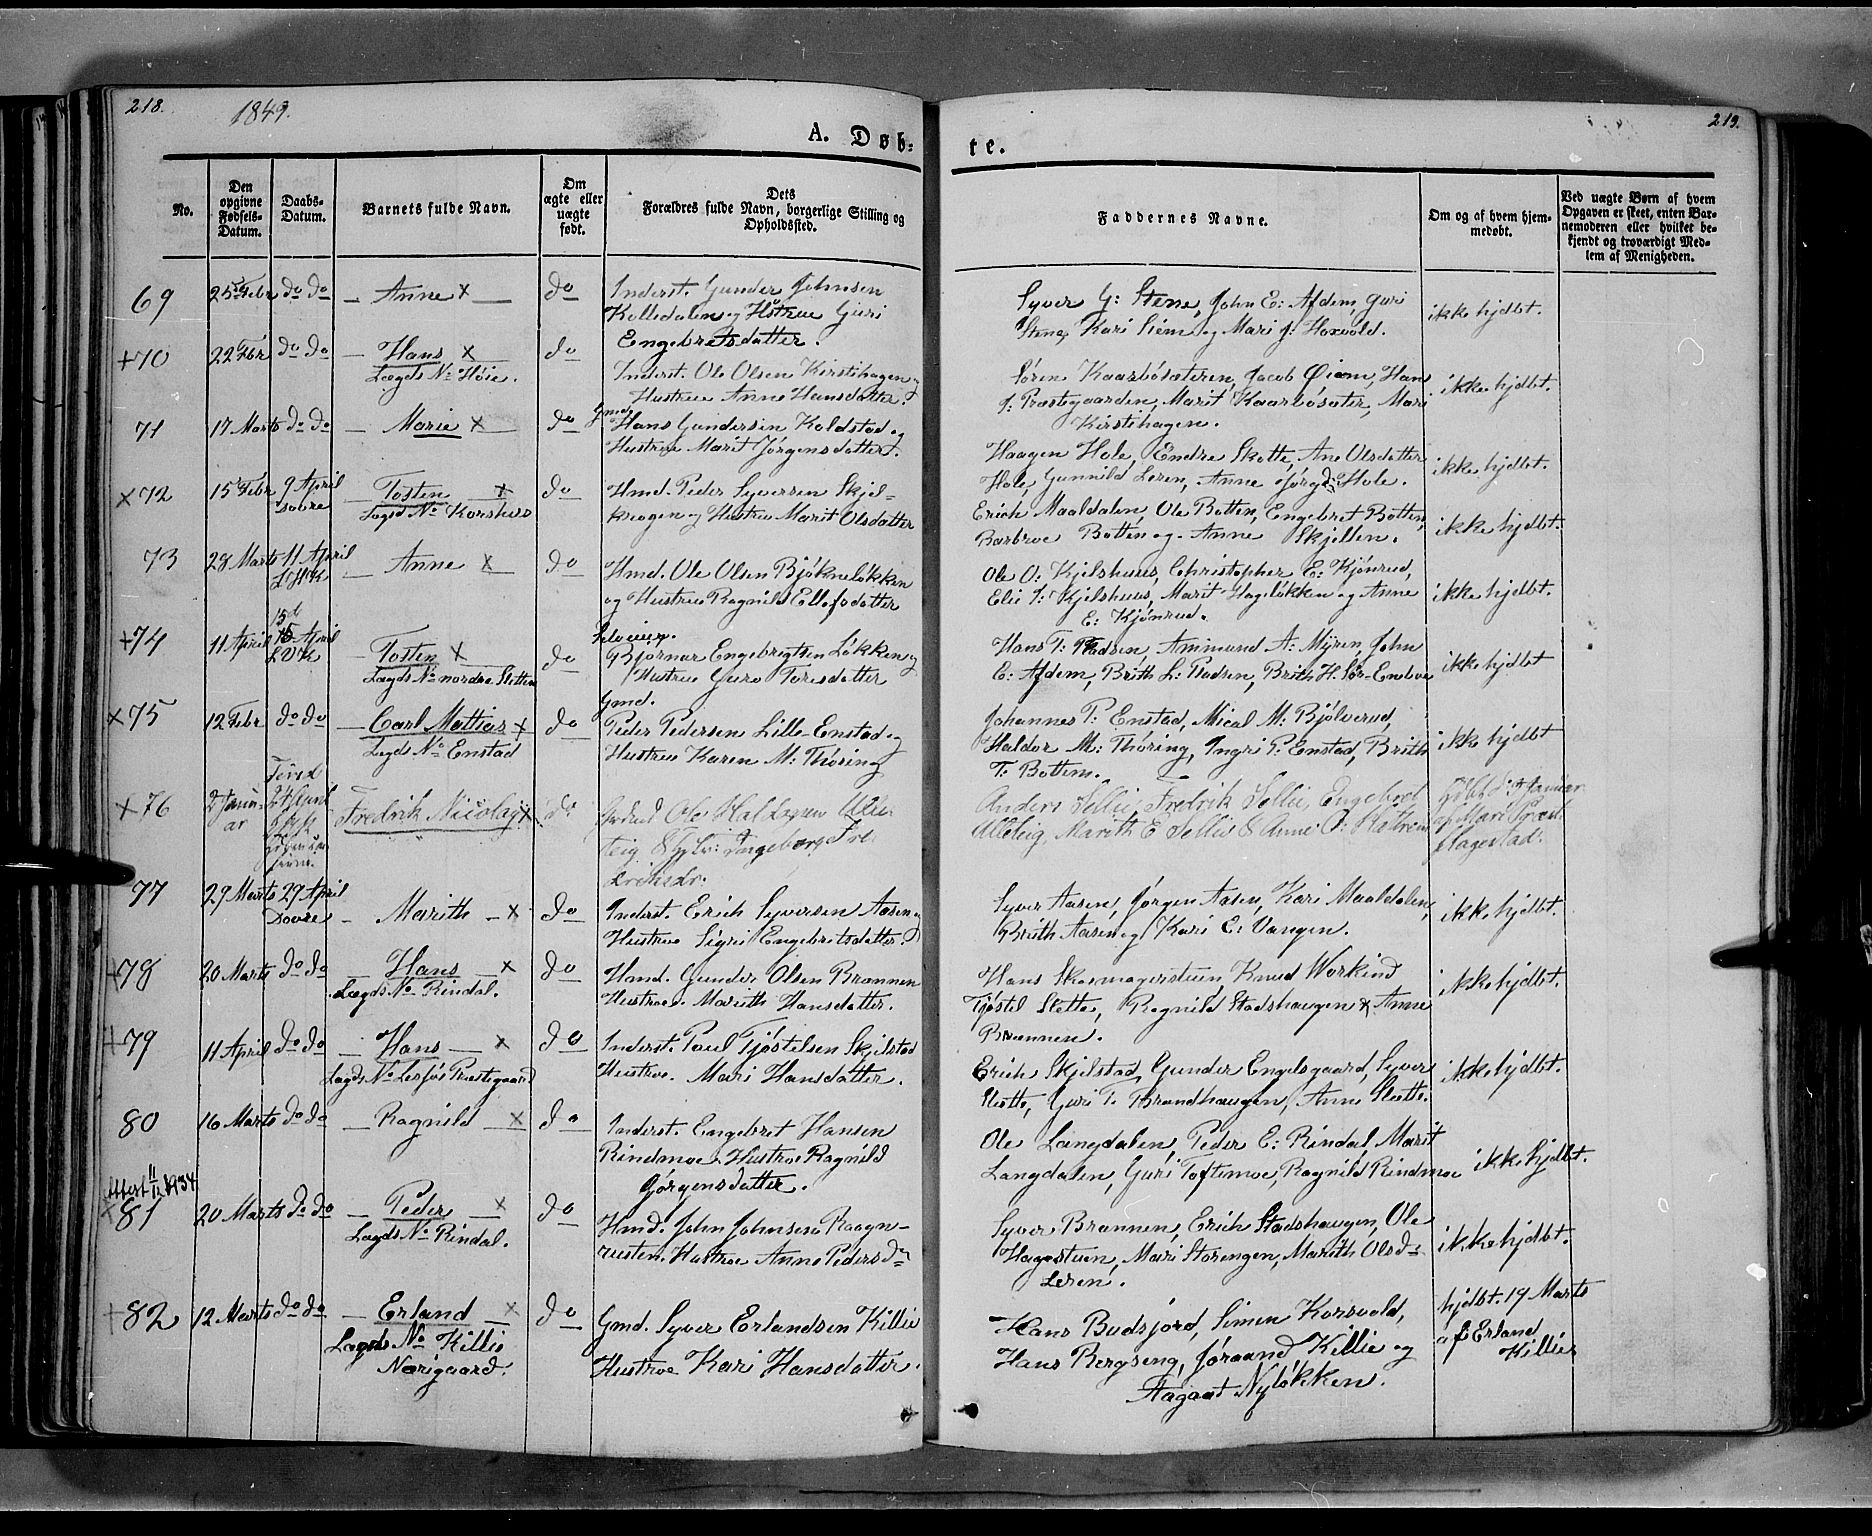 218.
1849.
219.
A. Døb-
te.
No.
Den
opgivne
Fødsels-
Datum.
Daabs-
Datum.
Barnets fulde Navn.
Om
ægte eller
uægte
født.
Dets
Forældres fulde Navn, borgerlige Stilling og
Opholdssted.
Faddernes Navne.
Om og af hvem hjem-
medøbt.
Ved uægte Børn af hvem
Opgaven er skeet, enten Bar-
nemoderen eller hvilket be-
kjendt og troværdigt Med-
lem af Menigheden.
69
25 Febr do do
Anne x
do
Inderst. Gunder Johnsen
og Hstrue Guri
Engebretsdatter.
Syver G: Stene, John E: Afdem, Guri
Stene, Kari Siem og Mari J: Hoxvold.
ikke hjdbt.
+70
22 Fbr do do
Hans x
Lægds No Høie.
do
Inderst. Ole Olsen Kirstihagen og
Hustrue Anne Hansdatter.
Søren Kaarbøsæteren, Jacob Øiem, Hans
J: Præstegaarden, Marit Kaarbøsæter, Mari
Kirstihagen.
ikke hjdbt.
71
17 Marts do do
Marie x
do
Gmd.
Hans Gundersen Koldstad og
Hustrue Marit Jørgensdatter.
Haagen Hole, Endre Slette, Ane Olsdatter
Hole, Gunnild Leren, Anne Jørgd: Hole.
ikke hjdbt.
x72
15 Febr 9 April
Dovre
Tosten x
Lægd No Korshus
do
Hmd. Peder Syversen Skjel-
krogen og Hustrue Marit Olsdatter
Erich Maaldalen, Ole Botten, Engebret Botten,
Barbroe Botten og Anne Skjellen.
ikke hjdbt.
73
28 Marts 11 April
L.H.K
Anne x
do
Hmd. Ole Olsen Bjøkneløkken
og Hustrue Ragnild Ellefsdatter
Ole O: Kjelshuus, Christopher E: Kjønrud,
Elie I: Kjelshuus, Marit Hageløkken og Anne
E: Kjønrud.
ikke hjdbt.
+74
11 April 15 April
L V K
Tosten x
Lægds No nordre Sletten
do
Selveier.
Bjørnar Engebrigtsen Løkken og
Hustrue Guro Toresdatter
Hans T: Ammund A: Myren, John
E: Afdem, Brith L: Brith H. Sør-Enebo
ikke hjdbt
x75
12 Febr do do
Carl Mathias x
Lægds No Enstad
do
Gmd.
Peder Pedersen Lille-Enstad og
Hustrue Karen M: Thøring
Johannes P: Enstad, Mical M: Bjølverud,
Haldor M: Thøring, Ingri P: Enstad, Brith
T: Bottem.
ikke hjdbt
x76
2 Janu-
ar
24 April
Fredrik Nicolay x
do
Ole Halvorsen Ulle-
teig & Ingeborg Fre-
driksdr.
Anders Sellie, Fredrik Sellie, Engebret
Ulleteig, Marith E Sellie & Anne
77
29 Marts 29 April
Dovre
Marith x
do
Inderst. Erich Syversen Aasen og
Hustrue Sigri Engebretsdatter.
Syver Aasen, Jørgen Aasen, Kari Maaldalen,
Brith Aasen og Kari E: Vangen.
ikke hjdbt.
+78
20 Marts do do
Hans x
Lægds No Rindal.
do
Hmd. Gunder Olsen Brønnen
Hustroe. Marith Hansdatter.
Hans Skoemagerstuen, Knud Workind
Tjøstel Slette, Ragnild Stadshaugen & Anne
Brønnen.
ikke hjdbt.
+79
11 April do do
Hans x
Lægds No Lesjøe Præstegaard
do
Inderst. Poul Tjøstelsen Skjelstad
Hustroe. Mari Hansdatter.
Erich Skjelstad, Gunder Engelsgaard, Syver
Slette, Guri T. Brandhaugen, Anne Slette.
ikke hjdbt.
80
16 Marts do do
Ragnild x
do
Inderst. Engebret Hansen
Rindmoe. Hustroe Ragnild
Jørgensdatter.
Ole Langdalen, Peder E: Rindal, Marit
Langdalen, Guri Toftemoe, Ragnild Rindmoe
ikke hjdbt.
Attest 11/11 1934
x81
20 Marts do do
Peder x
Lægds No Rindal.
do
Hmd. John Johnsen Raagn-
rusten. Hustroe Anne Pedersdr
Syver Brønnen, Erich Stadshaugen, Ole
Hagestuen, Mari Storengen, Marith Olsd:
Leren.
ikke hjdbt.
+82
12 Marts do do
Erland x
Lægds No Killie
Norigaard.
do
Gmd. Syver Erlandsen Killie
Hustroe Kari Hansdatter.
Hans Budsjord, Simen Korsvold,
Hans Bergseng, Jøraand Killie og
Aagaat Nyløkken.
hjdbt. 19 Marts
af Erland
Killie